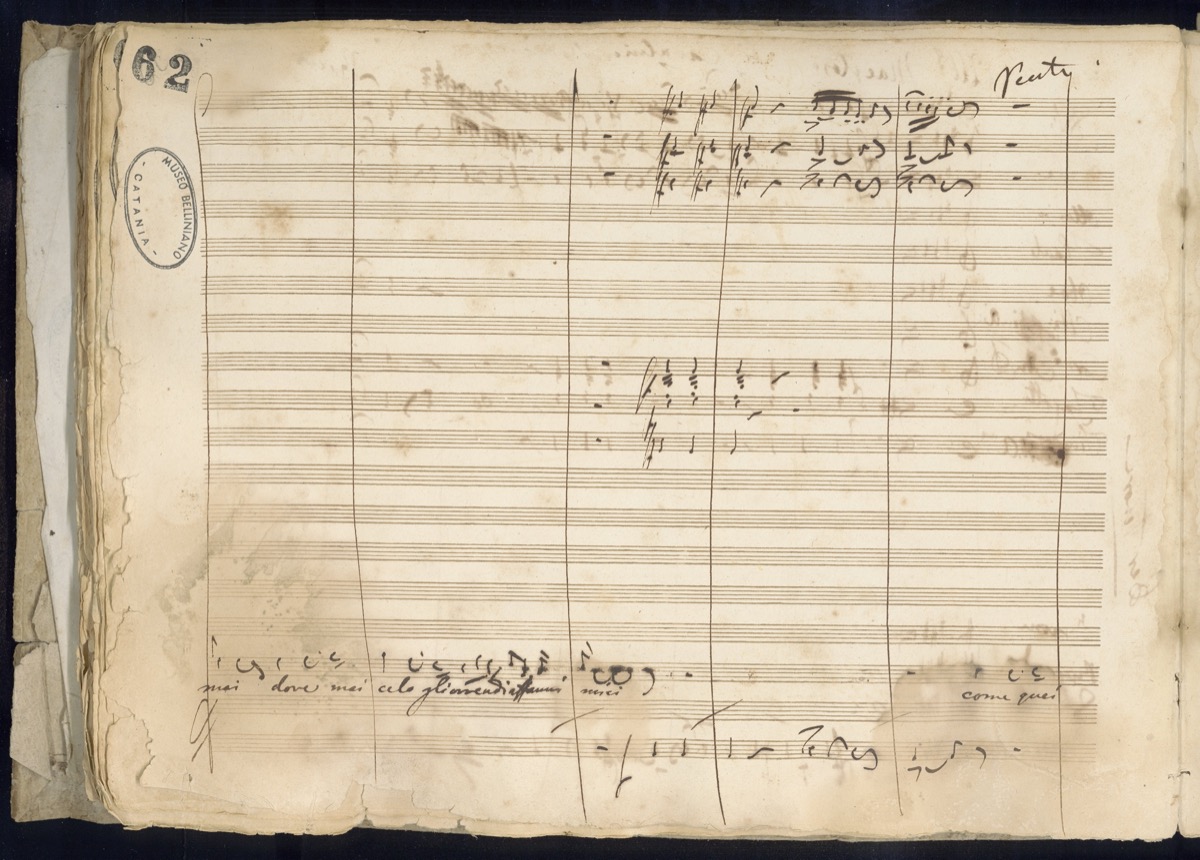 62
MUSEO BELLINIANO
- CATANIA -
mai dove mai celo gli orrendi affanni miei
come quei